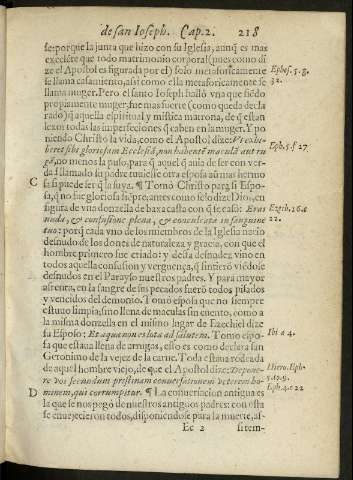 de san Ioseph. Cap. 2. 218
se: porque la junta que hizo con su Iglesia, aunq̃ es mas
excelẽte que todo matrimonio corporal (pues como di
ze el Apostol es figurada por el) solo metaforicamente
se llama casamiento, assi como ella metaforicamente se
llama muger. Pero el santo Ioseph hallò vna que siẽdo
propiamente muger, fue mas fuerte (como queda decla
rado) q̃ aquella espiritual y mistica matrona, de q̃ estan
lexos todas las imperfecciones q̃ caben en la muger. Y po
niendo Christo la vida, como el Apostol dize: Vt exhi-
beret sibi gloriosam Ecclesiã, non habentẽ maculã aut ru
gã, no menos la puso, para q̃ aquel q̃ auia de ser con ver-
dad llamado su padre tuuiesse otra esposa aũ mas hermo
sa si puede ser q̃ la suya. ¶ Tomò Christo para si Espo-
sa, q̃ no fue gloriosa siẽpre: antes como se lo dize Dios, en
figura de vna donzella de baxa casta con q̃ se casò: Eras
nuda, & confusione plena, & conculcata in sanguine
tuo: porq̃ cada vno de los miembros de la Iglesia nacio
desnudo de los dones de naturaleza y gracia, con que el
hombre primero fue criado: y desta desnudez vino en
todos aquella confusion y verguença, q̃ sintierõ viẽdose
desnudos en el Parayso nuestros padres. Y para mayor
afrenta, en la sangre de sus pecados fuerõ todos pisados
y vencidos del demonio. Tomò esposa que no siempre
estuuo limpia, sino llena de maculas sin cuento, como a
la misma donzella en el mismo lugar de Ezechiel dize
su Esposo: Et aqua non es lota ad salutem. Tomo espo-
sa que estaua llena de arrugas, esto es como declara san
Geronimo de la vejez de la carne. Toda estaua rodeada
de aquel hombre viejo, de que el Apostol dize: Depone-
re vos secundum pristinam conuersationem veterem ho-
minem, qui corrumpitur. ¶ La conuersacion antigua es
la que se nos pegò de nuestros antiguos padres: con esta
se enuejecieron todos, disponiendose para la muerte, as-
Ee 2 si tem-
Ephes. 5. g.
32.
Eph. 5. f 27
C
Ezech. 16. a
22.
Ibi a 4.
Hiero. Eph.
Eph. 4. e 22
D